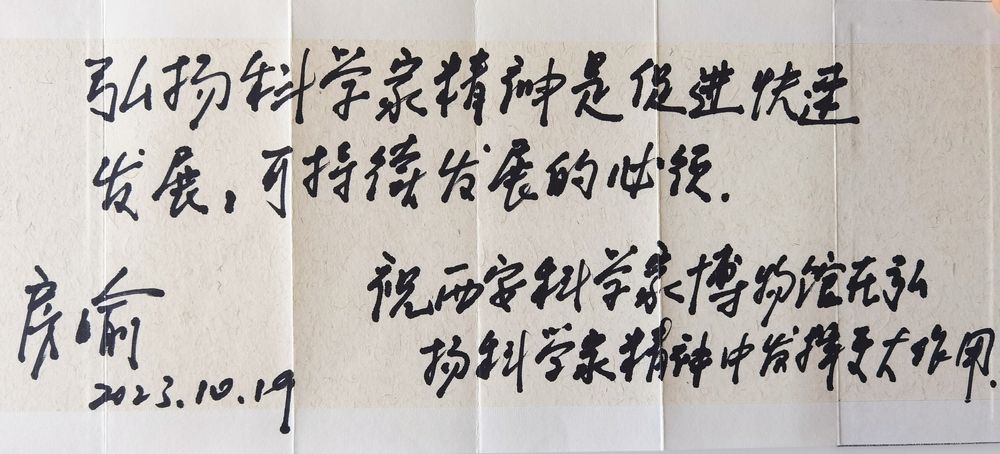 弘扬科学家精神是促进快速
发展,可持续发展的必须.
祝西安科学家博物馆在弘
扬科学家精神中发挥更大作用.
房喻
2023.10.19